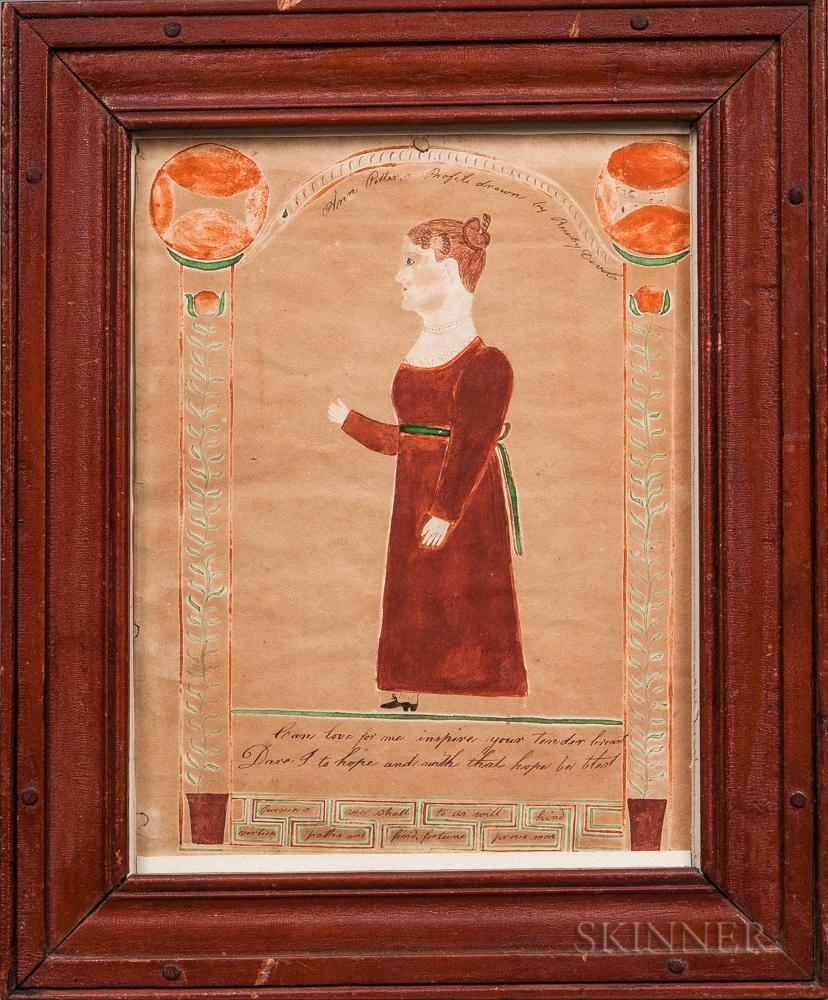 Ann Potter's Profile drawn by Ruby Devol
Can love for me inspire your tender breast
Dare I to hope and with that hope be blest
Persue we shall to us will kind
vertues paths and find fortune prove more
SKINNER